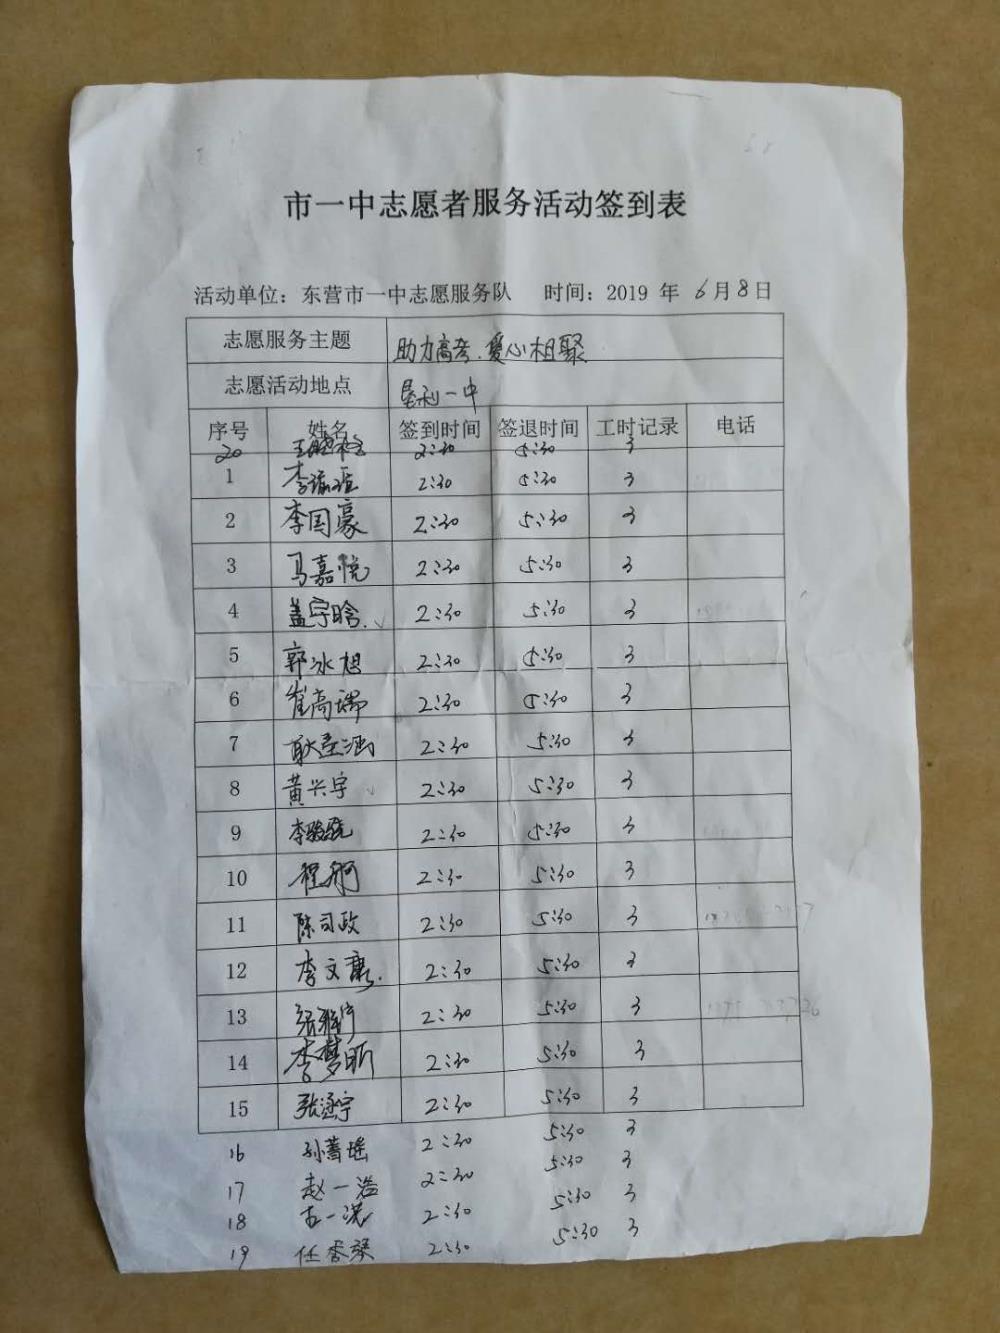 市一中志愿者服务活动签到表
活动单位：东营市一中志愿服务队 时间：2019 年 6月8日
志愿服务主题 助力高考.爱心相聚
志愿活动地点 垦利一中
序号 姓名 签到时间 签退时间 工时记录 电话
20 2:30 5:30 3
1 李 2:30 5:30 3
2 李国豪 2:30 5:30 3
3 马嘉悦 2:30 5:30 3
4 盖宇晗. 2:30 5:30 3
5 郭冰旭 2:30 5:30 3
6 崔高瑞 2:30 5:30 3
7 耿 涵 2:30 5:30 3
8 黄兴宇 2:30 5:30 3
9 李骏骁 2:30 5:30 3
10 程 2:30 5:30 3
11 陈司政 2:30 5:30 3
12 李文康. 2:30 5:30 3
13 张 2:30 5:30 3
14 李梦昕 2:30 5:30 3
15 张涵宇 2:30 5:30 3
16 孙菁瑶 2:30 5:30 3
17 赵一浩 2:30 5:30 3
18 2:30 5:30 3
19 任香燊 2:30 5:30 3